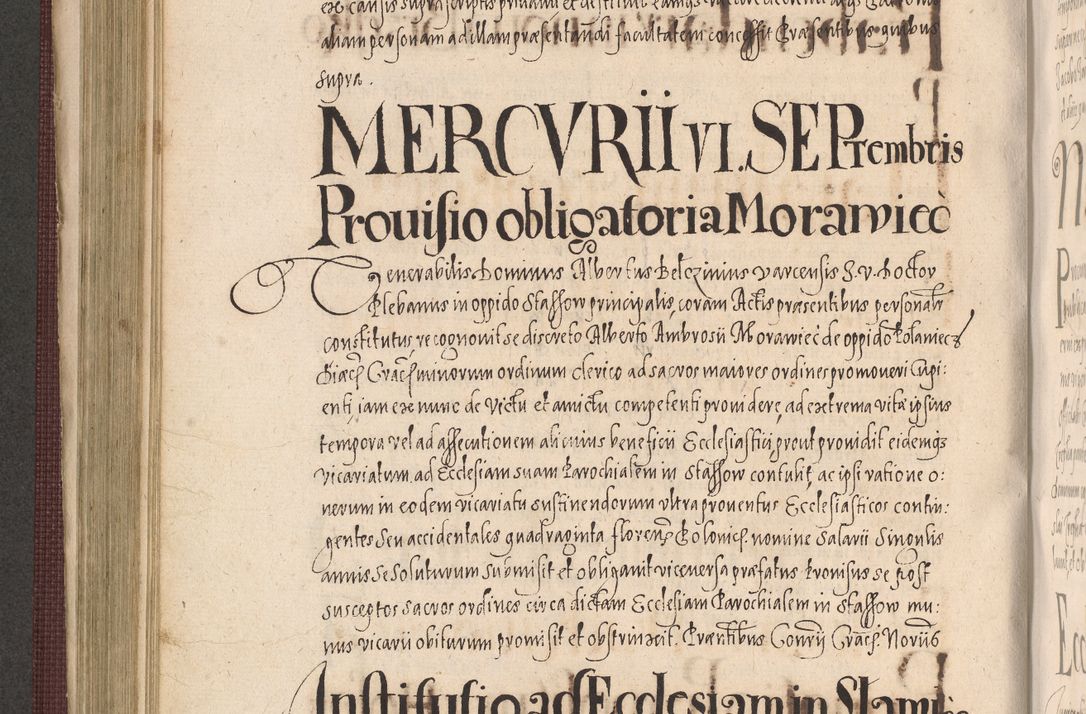 ex causis suprascriptis privavit et destituit eamque vacare decrevit atque
aliam personam ad illam præsentandi facultatem concessit Præsentibus quibus
supra.
MERCVRII VI. SEPtembris
Provisio obligatoria Morawiec
Venerabilis Dominus Albertus Belczinius Varcensis S. V. Doctor
Plebanus in oppido Stassow principalis, coram Actis præsentibus personalr
constitutus, recognovit se discreto Alberto Ambrosii Morawiec de oppido Polaniecz
Diæc Cracˢ minorum ordinum clerico ad sacros maiores ordines promoveri Cupi:
enti, iam ex nunc de victu et amictu competenti providere, ad extrema vitæ ipsius
tempora vel ad assecutionem alicuius beneficii Ecclesiastici prout providit eidemq3
vicariatum ad Ecclesiam suam Parochialem in Stassow contulit, ac ipsi ratione o:
nerum in eodem vicariatu sustinendorum ultra proventus Ecclesiasticos contin:
gentes seu accidentales quadraginta floren Polonic. nomine Salarii Singulis
annis se soluturum submisit et obligavit viceversa præfatus Provisus se post
susceptos sacros ordines circa dictam Ecclesiam Parochialem in Stassow mu:
nus vicarii obiturum promisit et obstrinxit. Præntibus Conrii Crac. Noriis
Institutio ad Ecclesiam in Slami